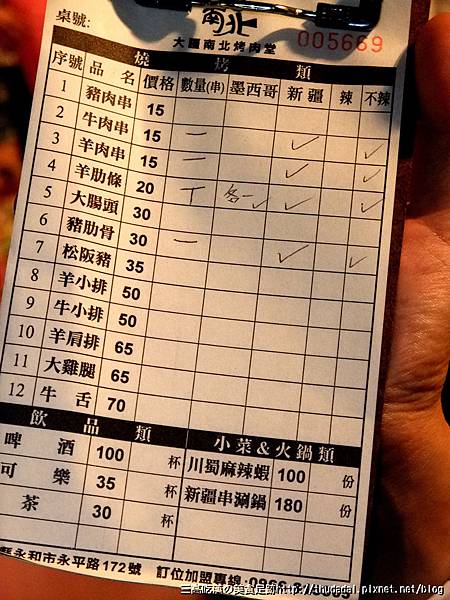 桌號:
南北
大國南北烤肉堂
005669
燒 烤 類
序號 品 名 價格 數量(串) 墨西哥 新疆 辣 不辣
1 豬肉串 15
2 牛肉串 15 一 ✓ ✓
3 羊肉串 15 一 ✓ ✓
4 羊肋條 20 丅 各一✓ ✓ ✓
5 大腸頭 30
6 豬肋骨 30 一 ✓ ✓
7 松阪豬 35
8 羊小排 50
9 牛小排 50
10 羊肩排 65
11 大雞腿 65
12 牛 舌 70
飲 品 類 小菜&火鍋類
啤 酒 100 杯 川蜀麻辣蝦 100 份
可 樂 35 杯 新疆串涮鍋 180 份
茶 30 杯
永和市永平路172號 訂位加盟專線:
http://thudadai.pixnet.net/blog